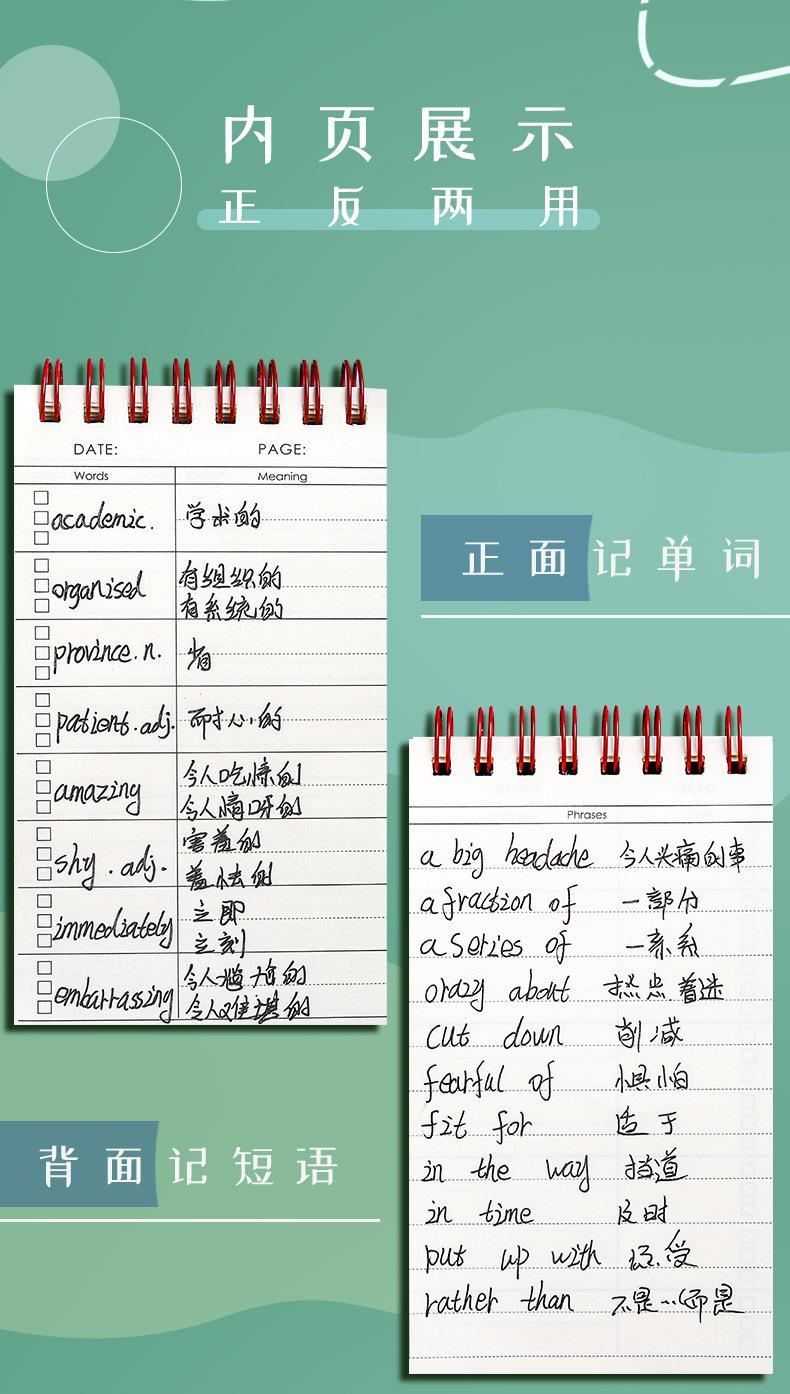 内页展示
正反两用
DATE: PAGE:
Words Meaning
academic. 学术的
organised 有组织的
有系统的
province.n. 省
patient.adj. 耐心的
amazing 令人吃惊的
令人惊呀的
shy.adj. 害羞的
羞怯的
immediately 立即
立刻
embarrassing 令人尴尬的
令人难堪的
正面记单词
Phrases
a big headache 令人头痛的事
a fraction of 一部分
a series of 一系列
crazy about 热忠着迷
cut down 削减
fearful of 惧怕
fit for 适于
in the way 挡道
in time 及时
put up with 忍受
rather than 不是…而是
背面记短语